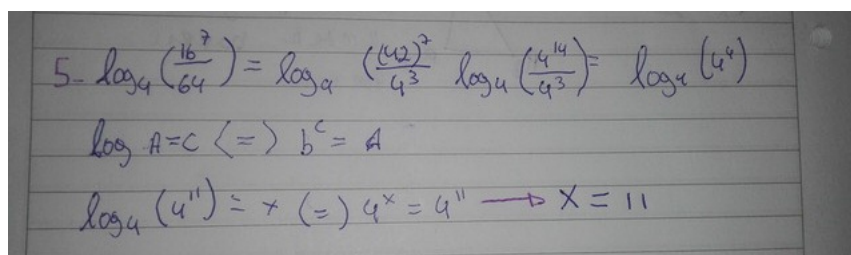 5- log₄ (16⁷/64) = log₄ ((42)⁷/4³ log₄ (4¹⁴/4³) = log₄ (4⁴)
log A = C (=) b^c = A
log₄ (4¹¹) = x (=) 4^x = 4¹¹ → X = 11